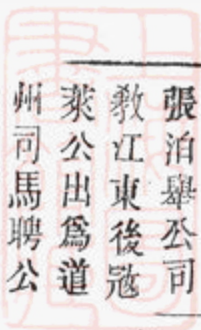 張泊舉公司
敎江東後宼
萊公出爲道
州司馬聘公